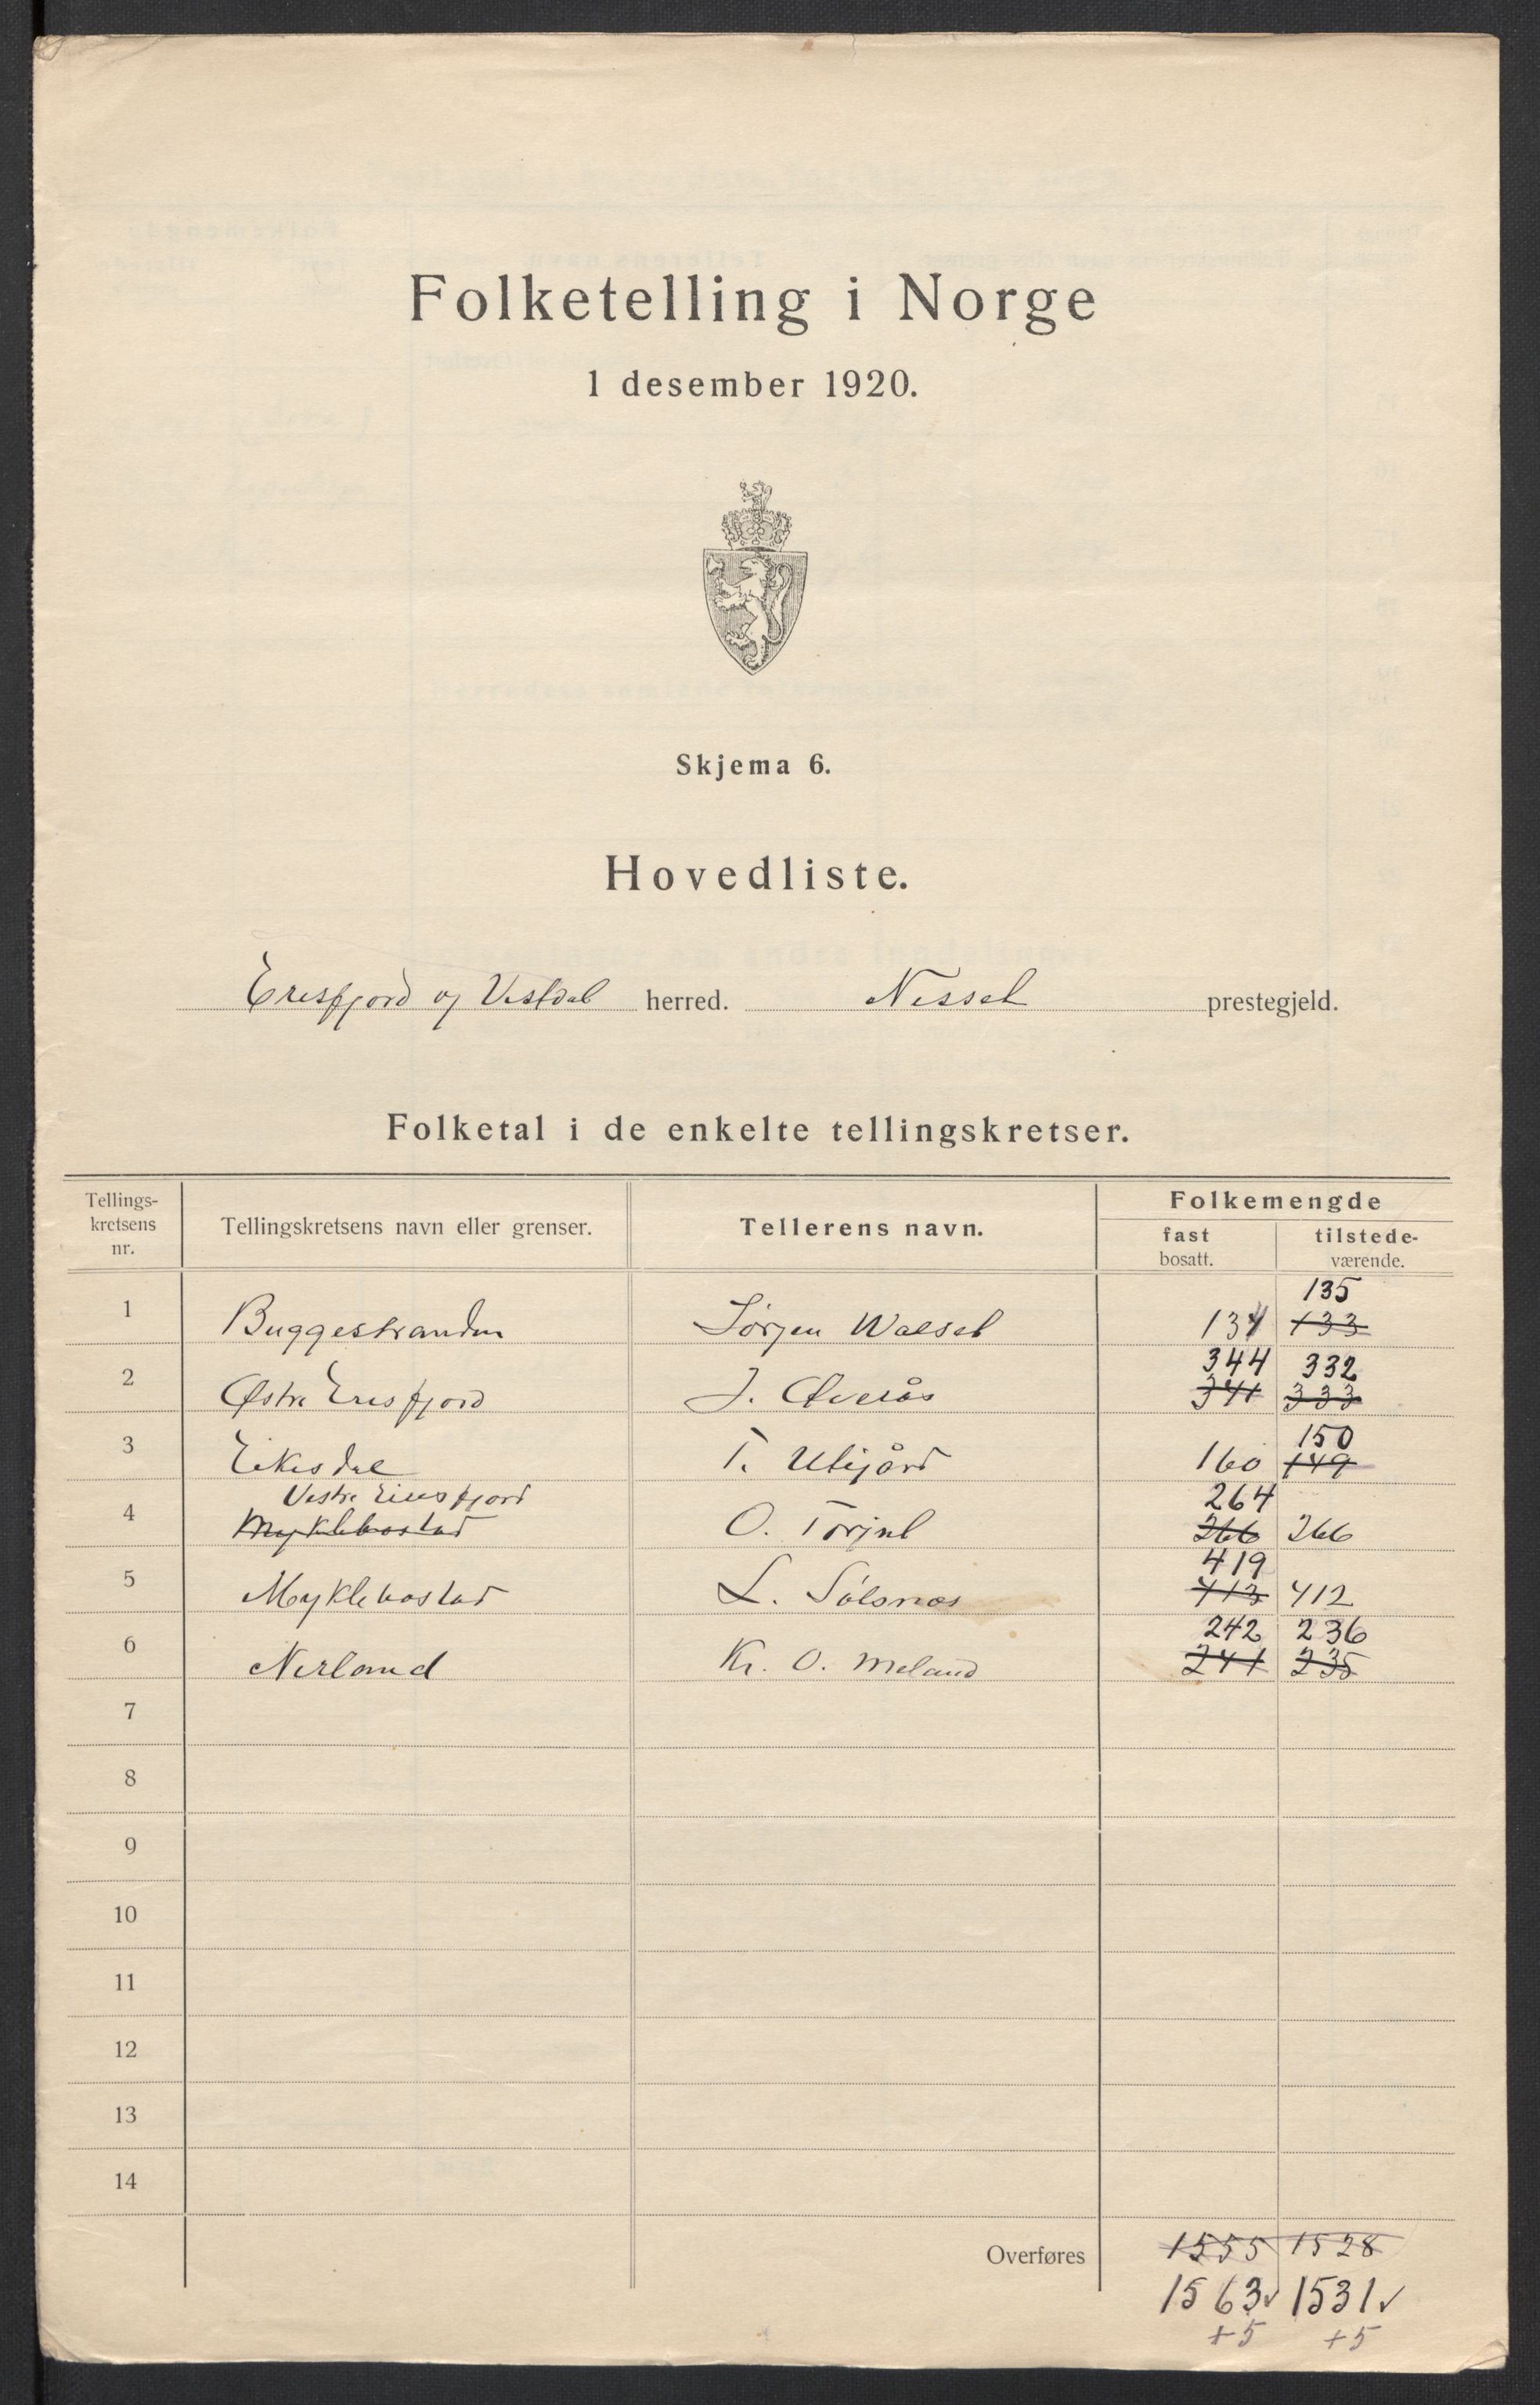 Folketelling i Norge
1 desember 1920.
Skjema 6.
Hovedliste.
Eresfjord og Vistdal herred. Nesset prestegjeld.
Folketal i de enkelte tellingskretser.
Tellings-
kretsens
nr.
Tellingskretsens navn eller grenser.
Tellerens navn.
Folkemengde
fast
bosatt.
tilstede-
værende.
135
1 Buggestranden Jørgen Walset 134 133
344 332
2 Østre Eresfjord J. Øverås 341 333
150
3 Eikesdal T. Utigård 160 149
Vestre Eresfjord 264
4 Myklebostad O. Torjul 266 266
419
5 Myklebostad L. Sølsnæs 413 412
242 236
6 Nerland Kr. O. Meland 241 235
7
8
9
10
11
12
13
14
Overføres 1555 1528
1563✓ 1531✓
+5 +5